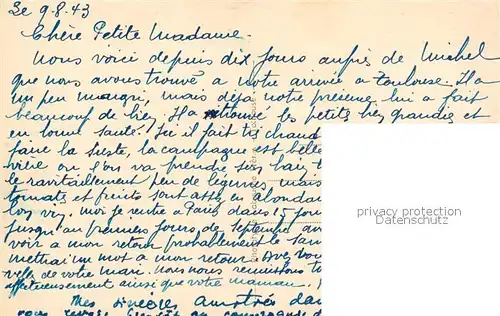 Le 9-8.43
Chère Petite Madame.
Nous voici depuis dix jours auprès de Michel
que nous avons trouvé a notre arrivée a Toulouse. Il a
un peu maigri, mais déja notre présence lui a fait
beaucoup de bien. Il a retrouvé les petits bien grandis et
en bonne santé. Ici il fait très chaud
faire la sieste, la campagne est belle
rivière ou l'on va prendre son bain
le ravitaillement peu de légumes mais
tomates et fruits sont assez en abondan
moi je rentre a Paris dans 15 jou
jusqu'au premiers jours de septembre
voir a mon retour probablement le
mettrai un mot a mon retour. Avez vou
de votre mari. nous nous réunissons
affectueusement ainsi que votre maman.
Mes sincères amitiés
privacy protection
Datenschutz